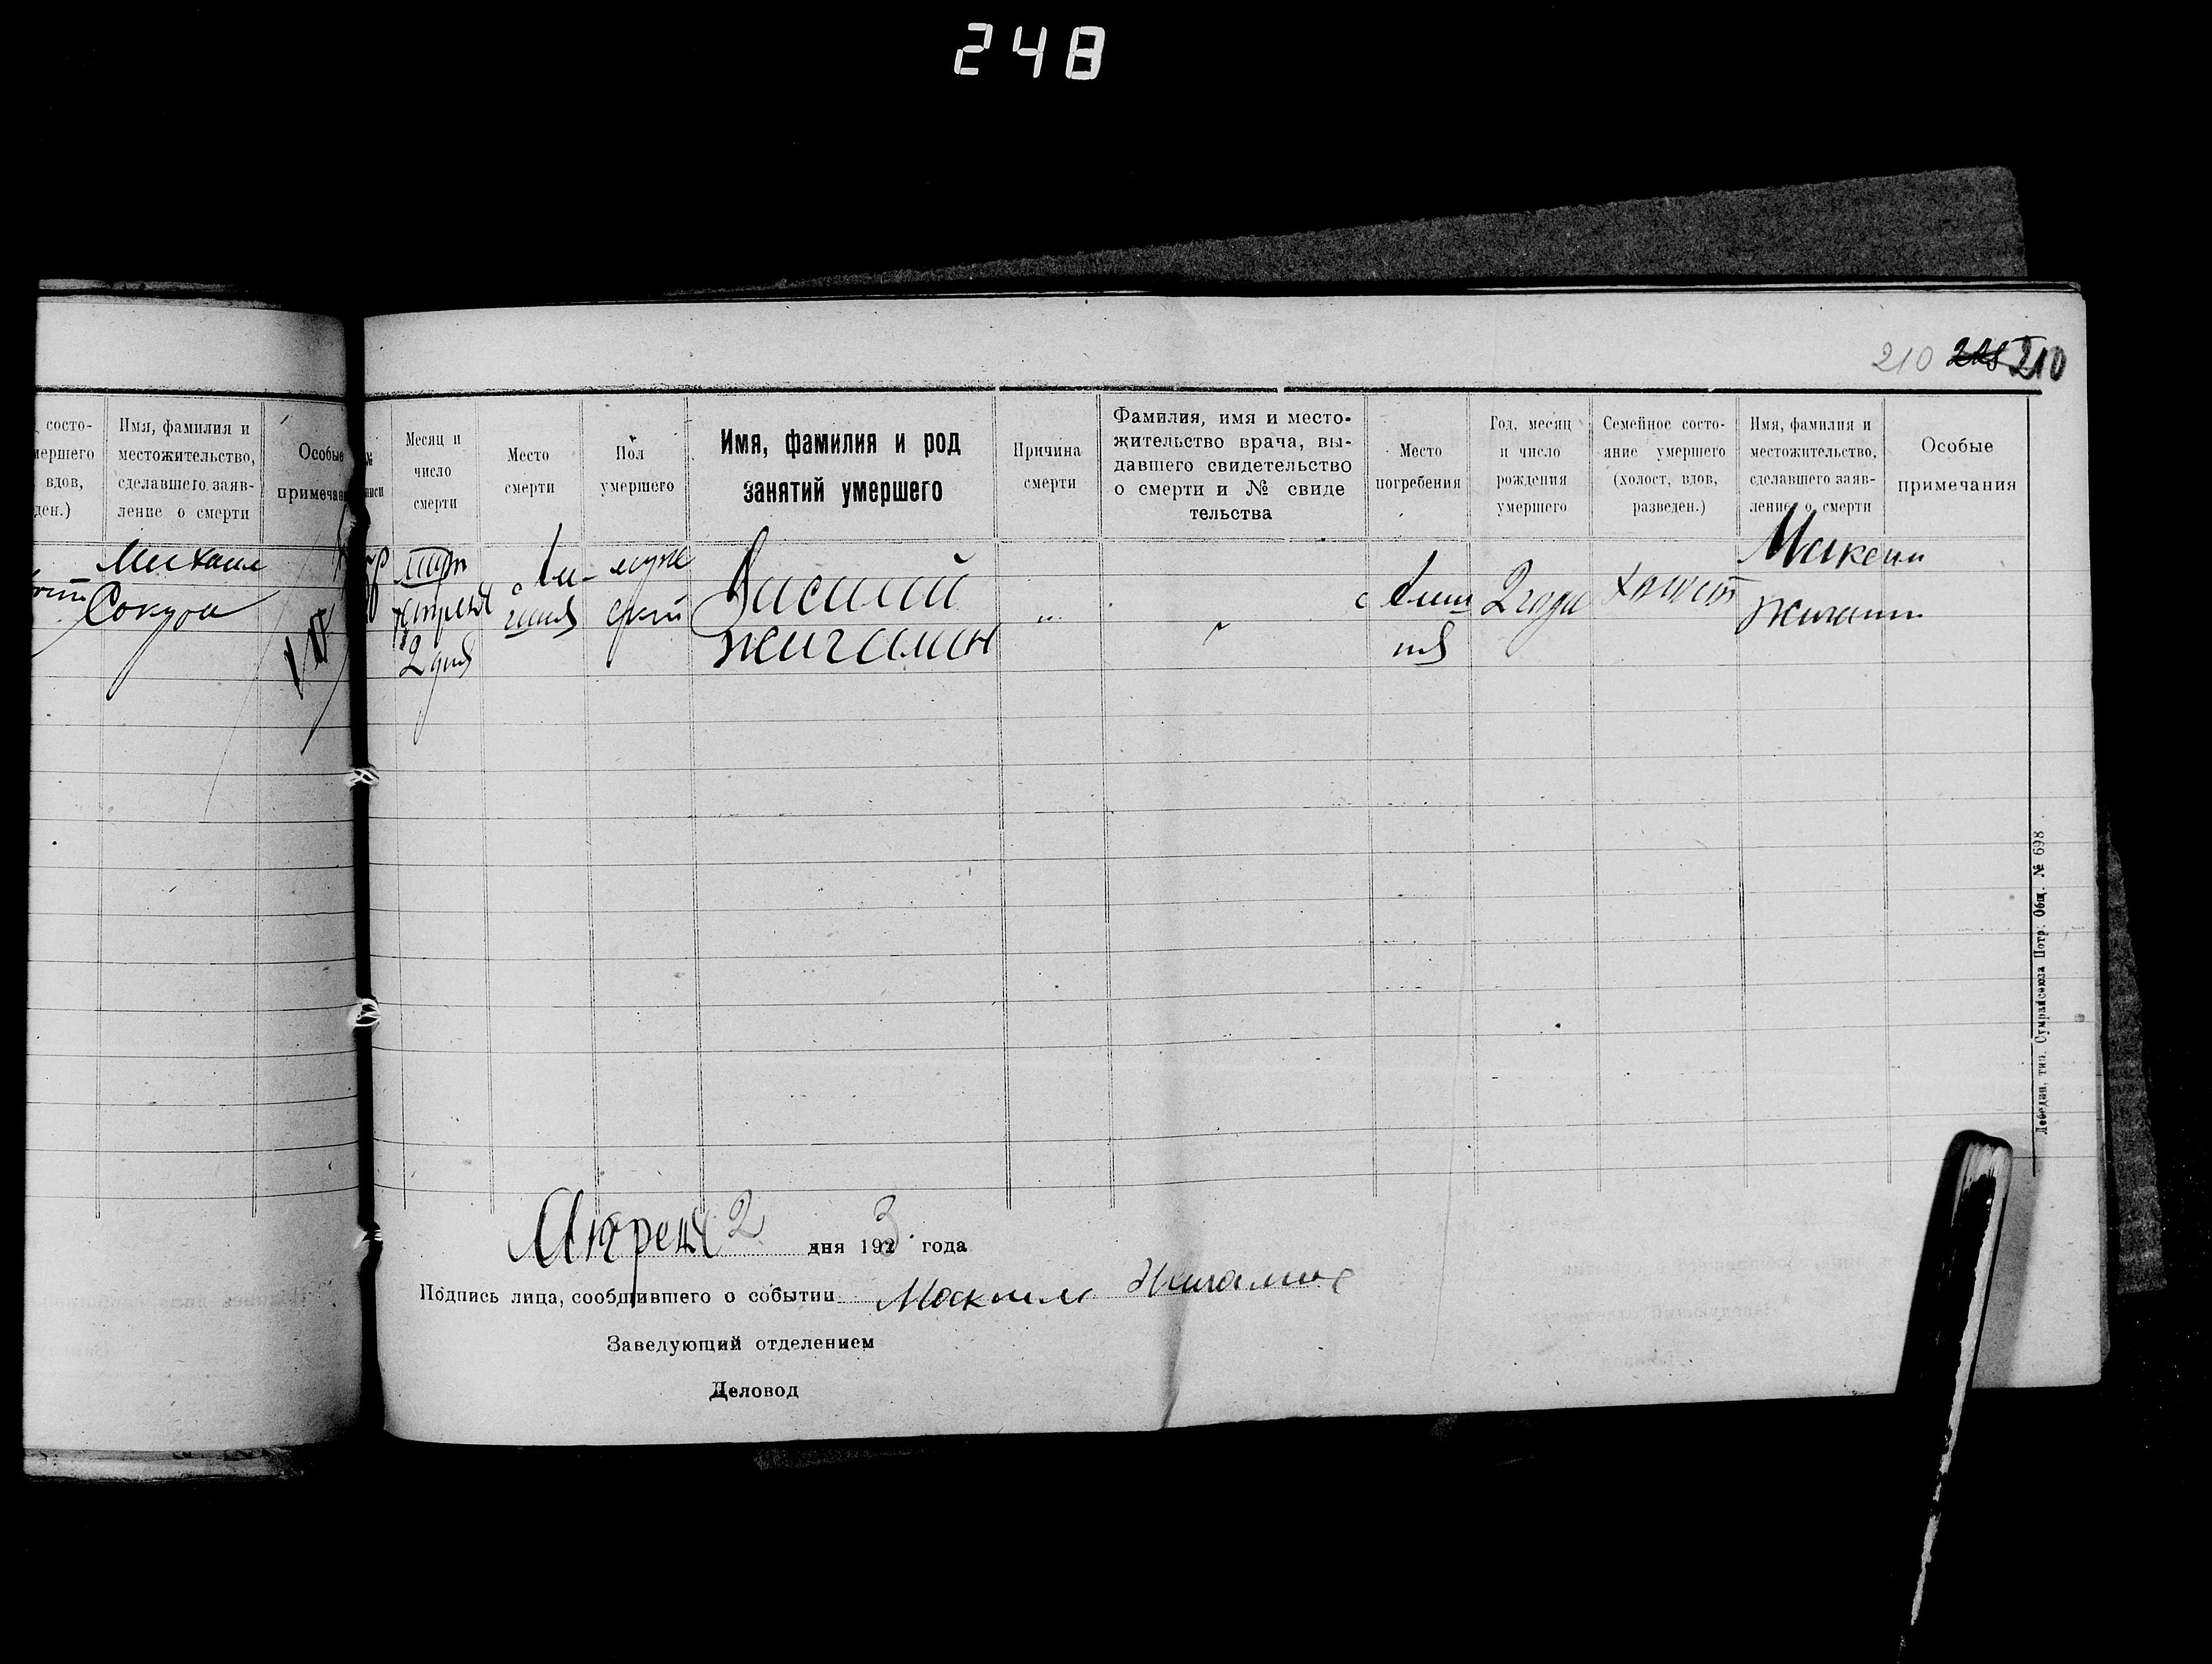 248
210 225 210
состо-
мершего
вдов,
ден.)
Имя, фамилия и
местожительство,
сделавшего заяв-
ление о смерти
Особые
примечан
Михаил
Сокура
№
писи
Месяц и
число
смерти
Место
смерти
Пол
умершего
Имя, фамилия и род
занятий умершего
Причина
смерти
Фамилия, имя и место-
жительство врача, вы-
давшего свидетельство
о смерти и № свиде
тельства
Место
погребения
Год, месяц
и число
рождения
умершего
Семейное состо-
яние умершего
(холост, вдов,
разведен.)
Имя, фамилия и
местожительство,
сделавшего заяв-
ление о смерти
Особые
примечания
Апреля
2 дня
муже
ской
Василий
Жигалин
"
2 года
холост
Максим
Жигалин
Апреля 2 дня 1923 года
Подпись лица, сообщившего о событии Максим Жигалин
Заведующий отделением
Деловод
Лебедин, тип. Сумрайсоюза Потр. Общ. № 698